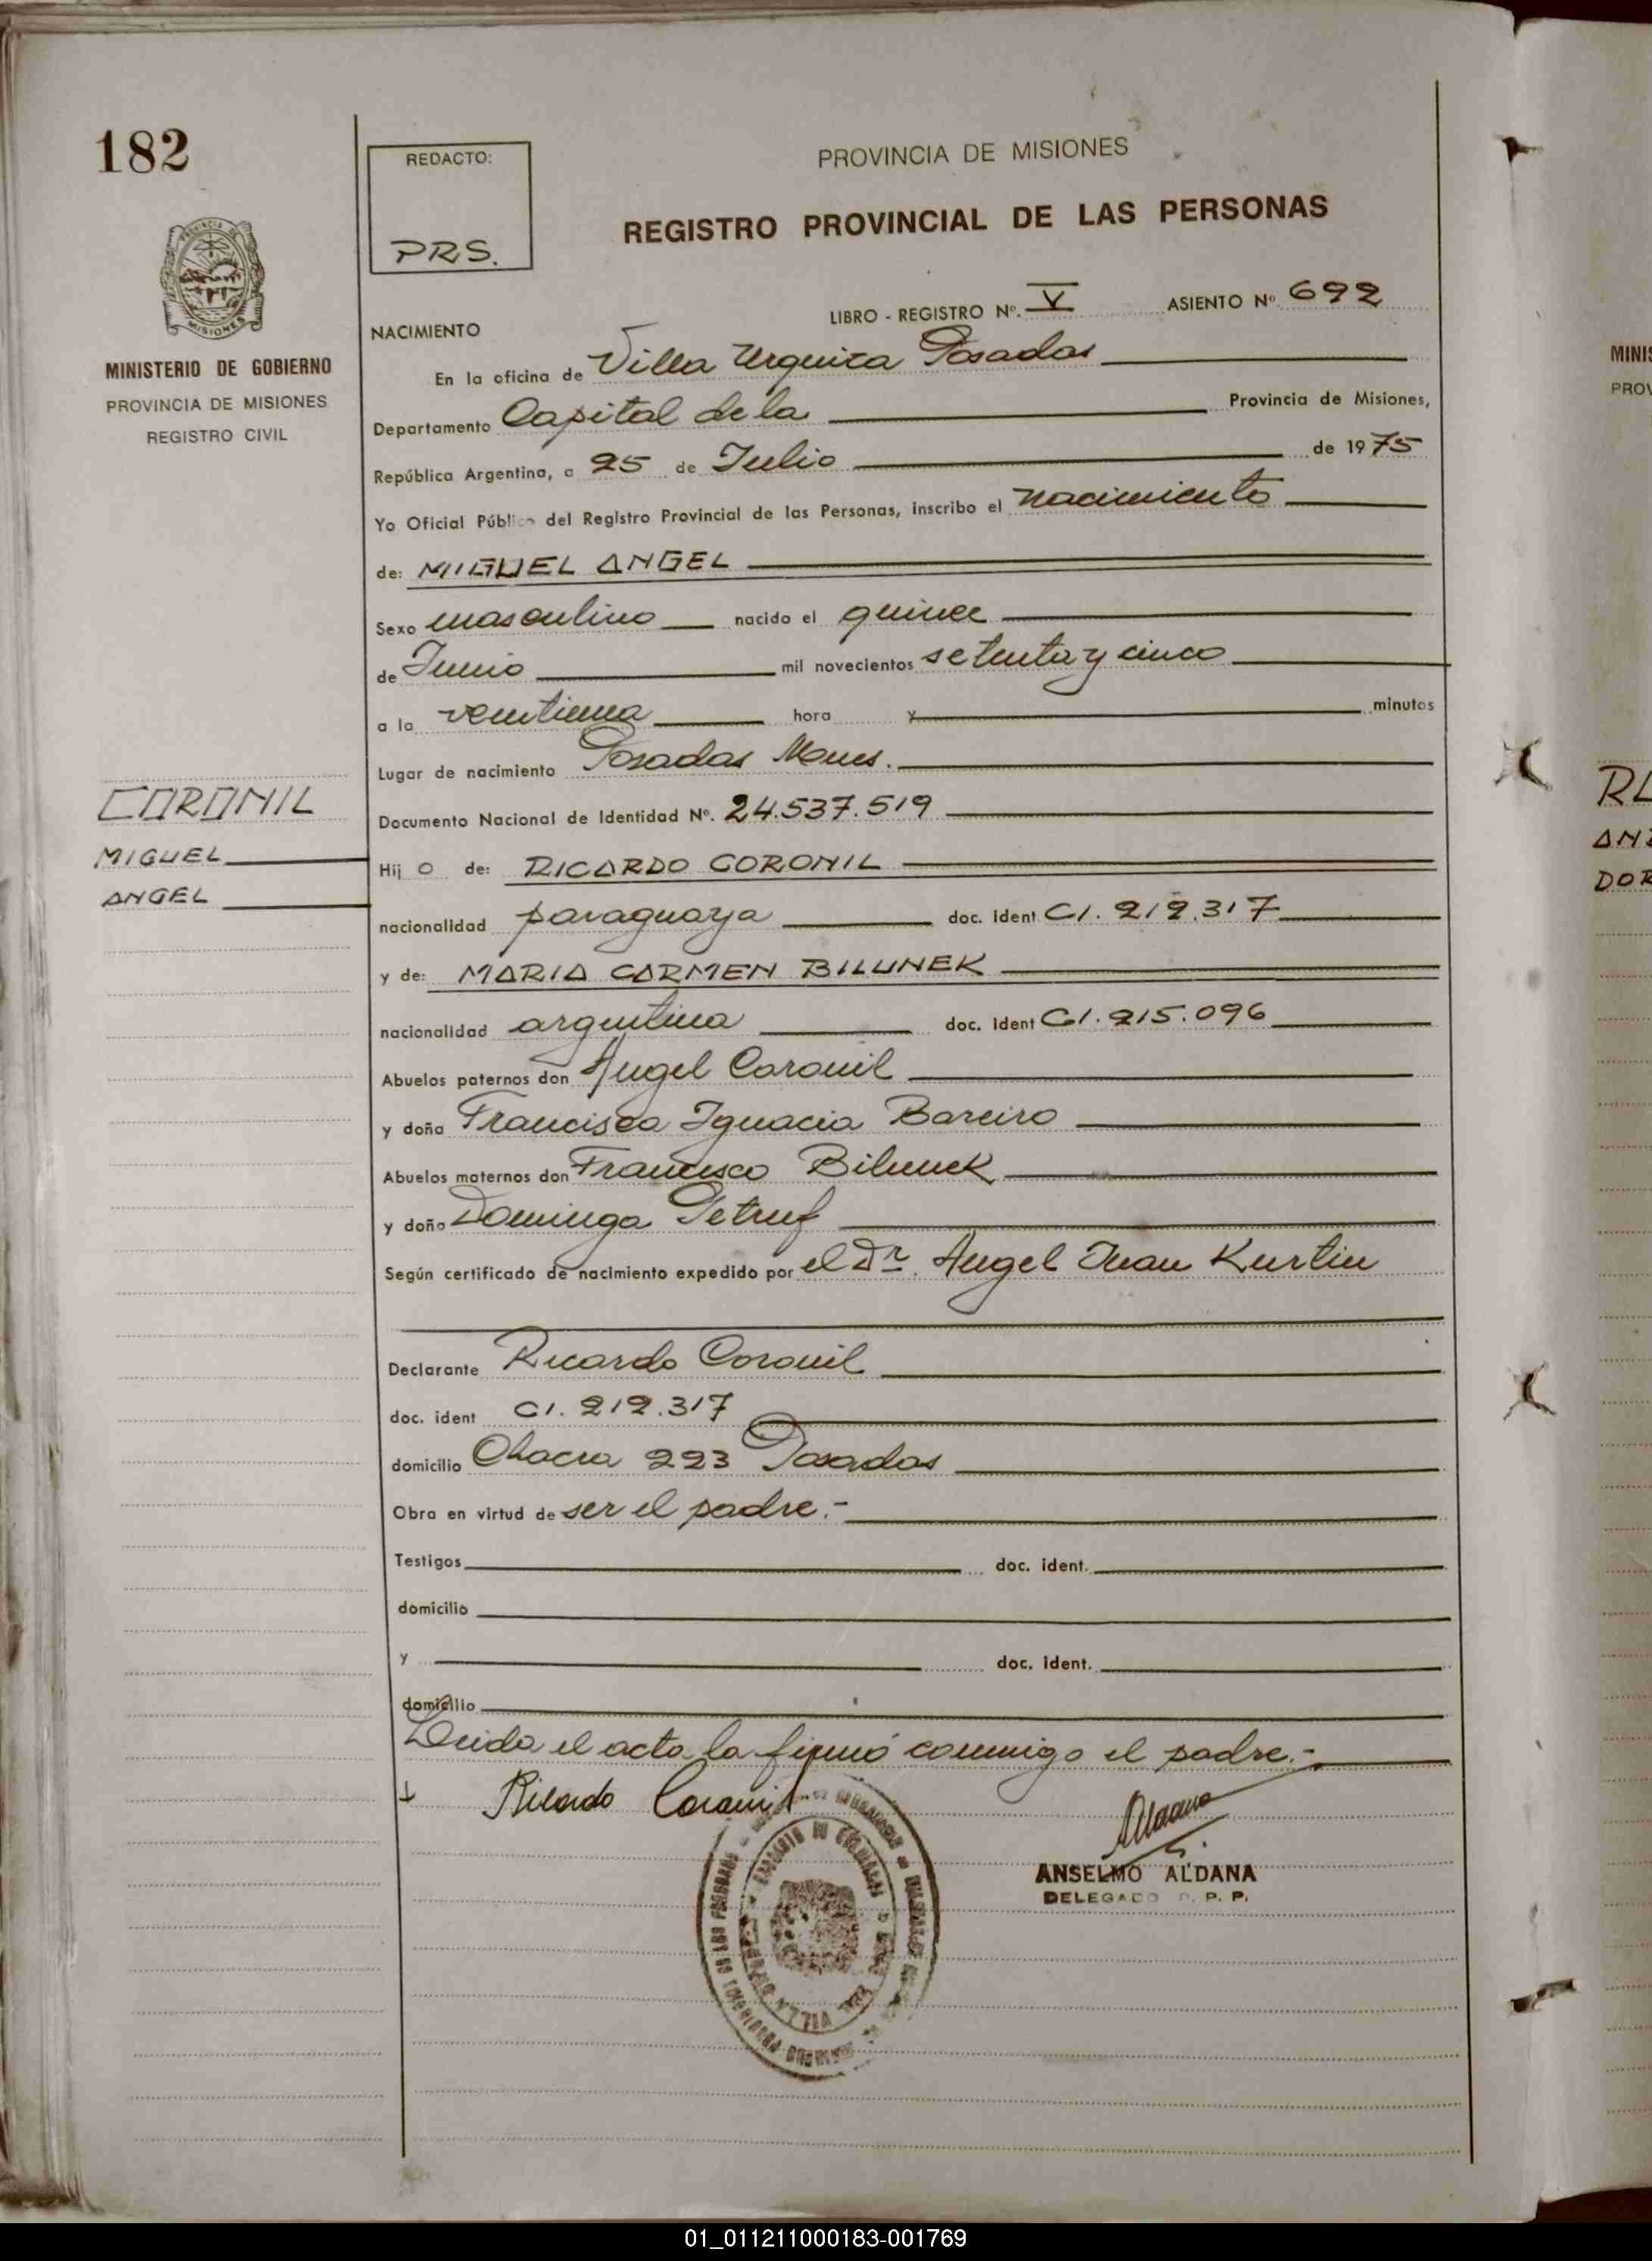 182
REDACTO:
PRS.
PROVINCIA DE MISIONES
REGISTRO PROVINCIAL DE LAS PERSONAS
MISIONES
MINISTERIO DE GOBIERNO
PROVINCIA DE MISIONES
REGISTRO CIVIL
LIBRO - REGISTRO Nº. V ASIENTO Nº 692
NACIMIENTO
En la oficina de Villa Urquiza Posadas
Departamento Capital de la Provincia de Misiones,
República Argentina, a 25 de Julio de 1975
Yo Oficial Público del Registro Provincial de las Personas, inscribo el nacimiento
de: MIGUEL ANGEL
Sexo masculino nacido el quince
de Junio mil novecientos setenta y cinco
a la veintiuna hora y minutos
Lugar de nacimiento Posadas Mnes.
CORONIL
MIGUEL
ANGEL
Documento Nacional de Identidad Nº. 24.537.519
Hij o de: RICARDO CORONIL
nacionalidad paraguaya doc. Ident CI. 212.317
y de: MARIA CARMEN BILUNEK
nacionalidad argentina doc. Ident CI. 215.096
Abuelos paternos don Angel Coronil
y doña Francisca Ignacia Bareiro
Abuelos maternos don Francisco Bilunek
y doña Dominga
Según certificado de nacimiento expedido por el Dr. Angel Juan Kurtin
Declarante Ricardo Coronil
doc. ident CI. 212.317
domicilio Chacra 223 Posadas
Obra en virtud de ser el padre.-
Testigos doc. ident.
domicilio
y doc. ident.
domicilio
Leida el acta la firmó conmigo el padre.-
Ricardo Coronil
Aldana
ANSELMO ALDANA
DELEGADO R. P. P.
MINIS
PROV
RL
DOR
01_011211000183-001769